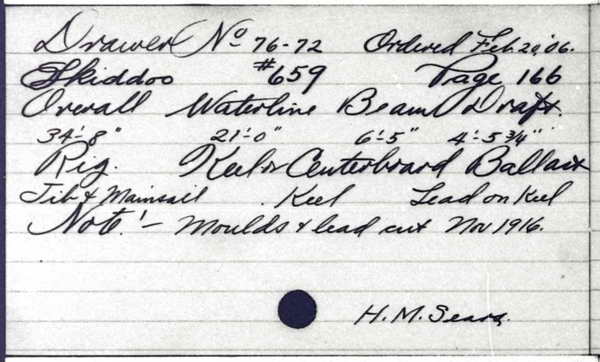 Drawer No 76-72 Ordered Feb. 20, '06.
Skiddoo #659 Page 166
Overall Waterline Beam Draft.
34'-8" 21'-0" 6'-5" 4'-5 3/4"
Rig. Keel or Centerboard Ballast
Jib & Mainsail . Keel Lead on Keel
Note! - Moulds & lead cut Nov 1916.
H. M. Sears.